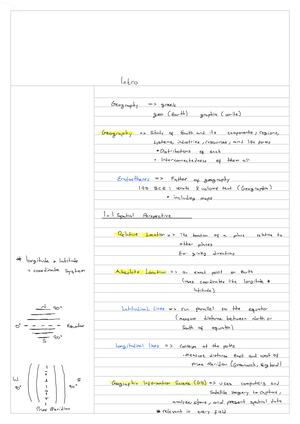 Intro
Geography => greek
geo (Earth) graphia (write)
Geography => Study of Earth and its components, regions,
systems, industries, resources, and life forms
• Distributions of each
• Interconnectedness of them all
Eratosthenes => Father of geography
BCE: wrote 3 volume text (Geographia)
* including maps
1.1 Spatial Perspective
Relative Location => The location of a place relative to
other places
for giving directions
# longitude + latitude
= coordinate System
Absolute Location => an exact point on Earth
(uses coordinates the longitude &
latitude)
Latitudinal Lines => run parallel to the equator
(measure distance between north or
South of equator)
N 90°
0° Equator
S 90°
Longitudinal lines => converge at the poles
measure distance east and west of
prime Meridian (Greenwich, England)
W E
Prime Meridian
Geographic Information Science (GIS) => uses computers and
Satellite imagery to capture,
analyze, store, and present spatial data
* relevant in every field